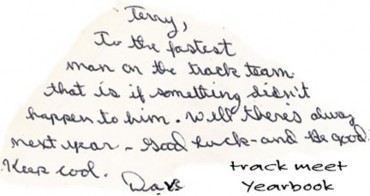 Terry,
To the fastest
man on the track team.
that is if something didn't
happen to him. Well there's alway
next year - Good luck - and be good.
Keep cool.
Dave
track meet
Yearbook